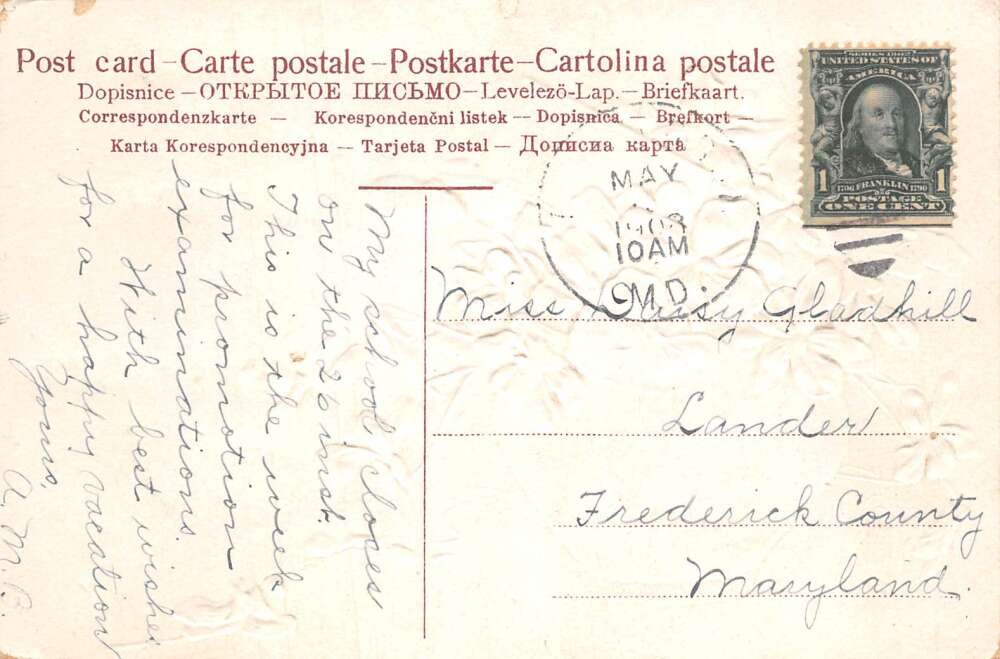 Post card – Carte postale – Postkarte – Cartolina postale
Dopisnice – ОТКРЫТОЕ ПИСЬМО – Levelező-Lap. – Briefkaart.
Correspondenzkarte – Korespondenčni listek – Dopisnica – Brefkort –
Karta Korespondencyjna – Tarjeta Postal – Дописна карта
SERIES 1902
UNITED STATES OF
AMERICA
1706 FRANKLIN 1790
1 1
POSTAGE
ONE CENT
MAY
1908
10AM
M.D.
Miss Daisy Gladhill
Lander
Frederick County
Maryland.
My school closes
on the 26 inst.
This is the week
for promotion
examinations.
With best wishes
for a happy vacation
Yours,
A. M. B.